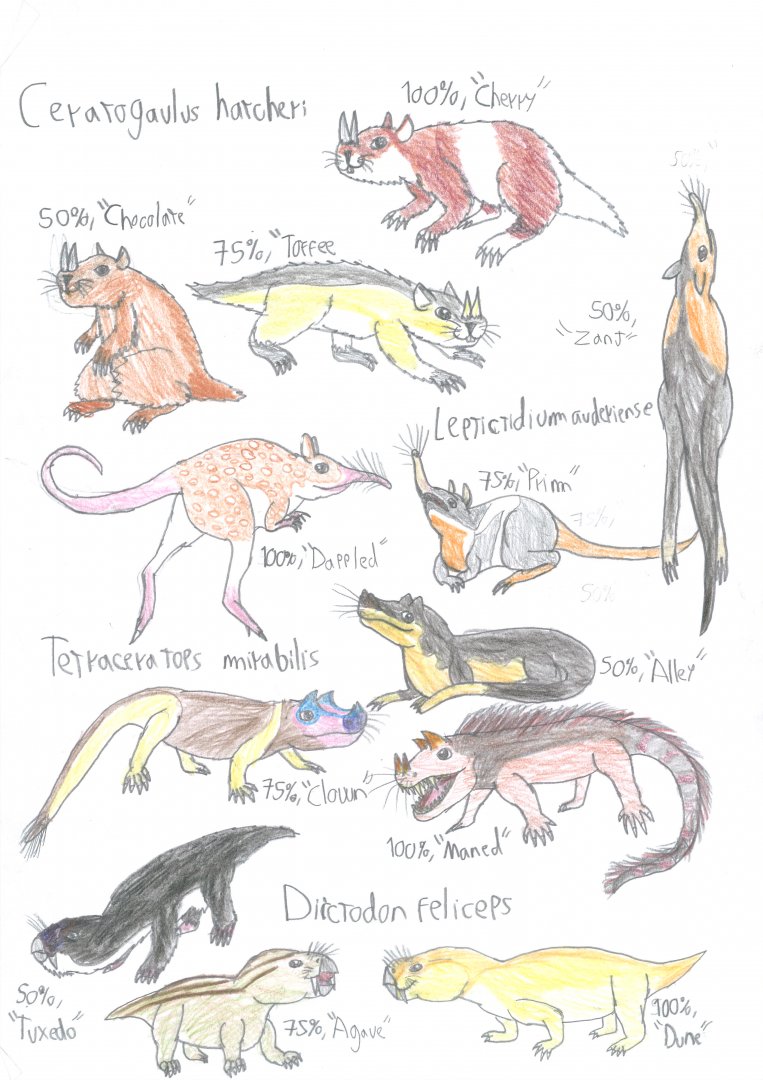 Ceratogaulus hatcheri
100%, "Cherry"
50%,"
50%, "Chocolate"
75%, "Toffee
50%,
"Zanj"
Leptictidium auderiense
75%, "Prim"
75%,
100%, "Dappled"
50%
Tetraceratops mirabilis
50%, "Alley"
75%, "Clown"
100%, "Maned"
Diictodon feliceps
50%,
"Tuxedo"
75%, "Agave"
100%,
"Dune"